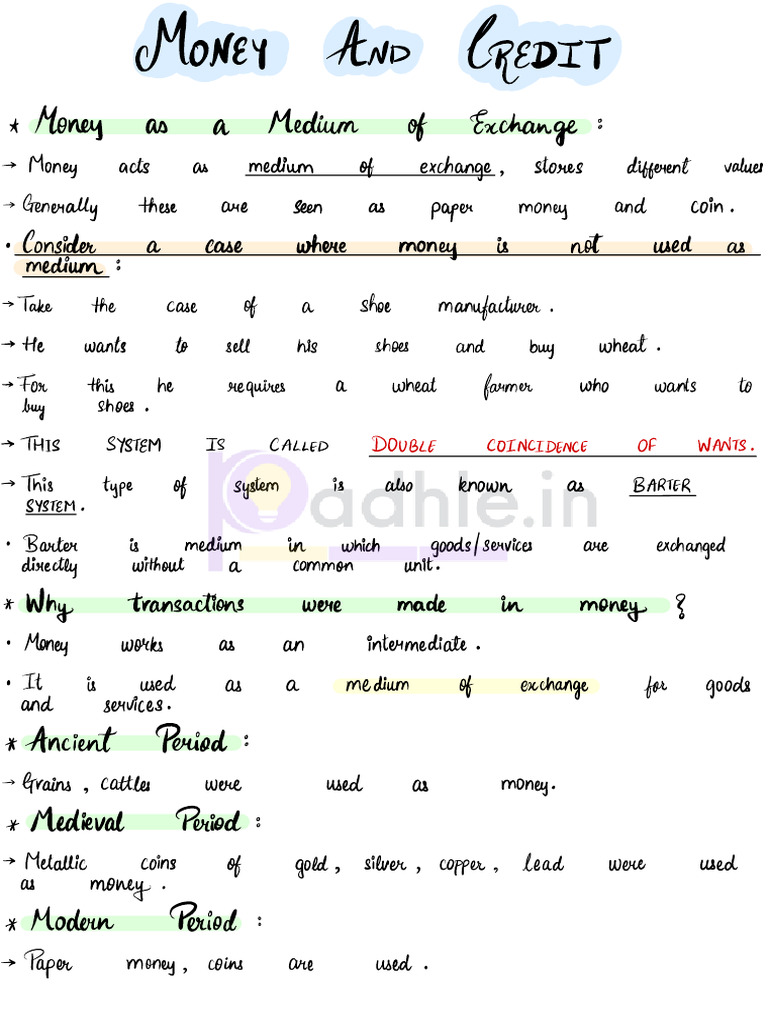 MONEY AND CREDIT
* Money as a Medium of Exchange :
→ Money acts as medium of exchange, stores different values
→ Generally these are seen as paper money and coin.
• Consider a case where money is not used as
medium :
→ Take the case of a shoe manufacturer.
→ He wants to sell his shoes and buy wheat.
→ For this he requires a wheat farmer who wants to
buy shoes.
→ THIS SYSTEM IS CALLED DOUBLE COINCIDENCE OF WANTS.
→ This type of system is also known as BARTER
SYSTEM.
padhle.in
• Barter is medium in which goods/services are exchanged
directly without a common unit.
* Why transactions were made in money ?
• Money works as an intermediate.
• It is used as a medium of exchange for goods
and services.
* Ancient Period :
→ Grains, cattles were used as money.
* Medieval Period :
→ Metallic coins of gold, silver, copper, lead were used
as money.
* Modern Period :
→ Paper money, coins are used.